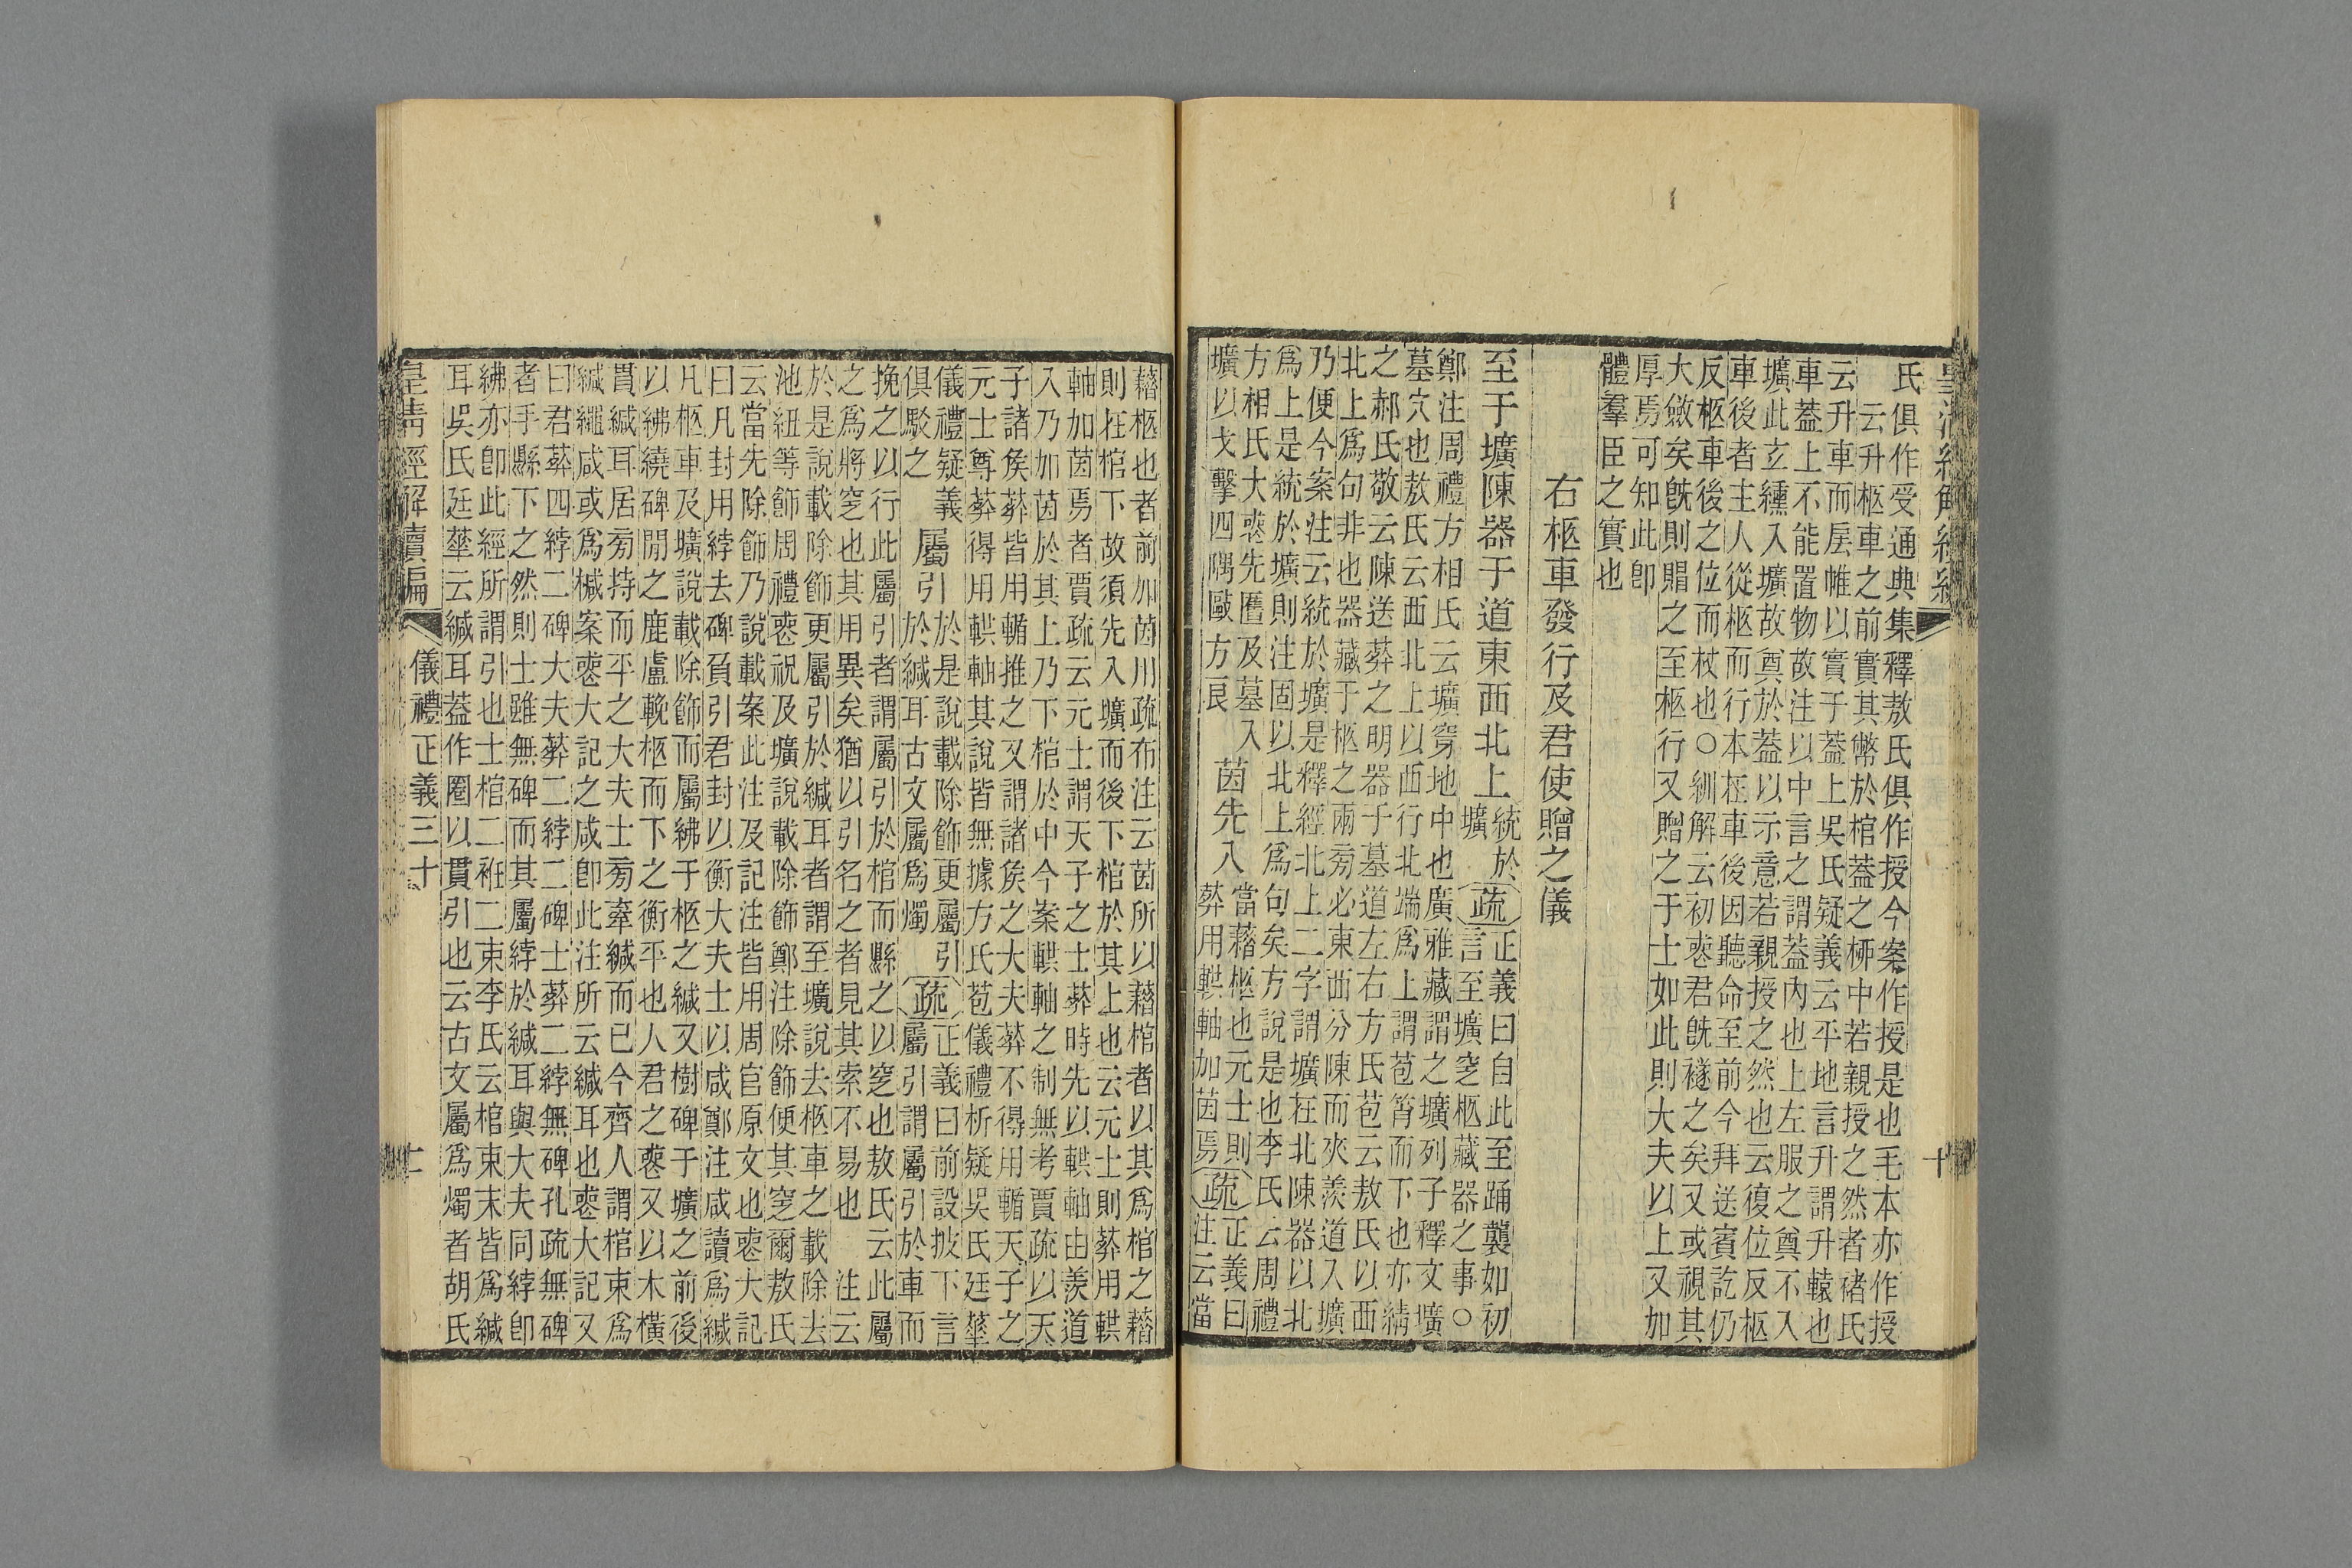 氏俱作受通典集釋敖氏俱作授今案作授是也毛本亦作授
云升柩車之前實其幣於棺蓋之柳中若親授之然者褚氏
云升車而㞒帷以實于蓋上吳氏疑義云平地言升謂升轅也
車蓋上不能置物故注以中言之謂蓋內也上左服之奠不入
壙此玄纁入壙故奠於蓋以示意若親授之然也云復位反柩
車後者主人從柩而行本在車後因聽命至前今拜送賓訖仍
反柩車後之位而杖也○紃解云初喪君既襚之矣又或視其
大斂矣既則賵之至柩行又贈之于士如此則大夫以上又加
厚焉可知此卽
體羣臣之實也
右柩車發行及君使贈之儀
至于壙陳器于道東西北上
統於
壙
疏
正義曰自此至踊襲如初
言至壙窆柩藏器之事○
鄭注周禮方相氏云壙穿地中也廣雅藏謂之壙列子釋文壙
墓穴也敖氏云西北上以西行北端爲上謂苞筲而下也亦綪
之郝氏敬云陳送葬之明器于墓道左右方氏苞云敖氏以西
北上爲句非也器藏于柩之兩旁必東西分陳而夾羨道入壙
乃便今案注云統於壙是釋經北上二字謂壙在北陳器以北
爲上是統於壙則注固以北上爲句矣方說是也李氏云周禮
方相氏大喪先匶及墓入
壙以戈擊四隅毆方良
茵先入
當藉柩也元士則
葬用輁軸加茵焉
疏
正義曰
注云當
藉柩也者前加茵川疏布注云茵所以藉棺者以其爲棺之藉
則在棺下故須先入壙而後下棺於其上也云元士則葬用輁
軸加茵焉者賈疏云元士謂天子之士葬時先以輁軸由羨道
入乃加茵於其上乃下棺於中今案輁軸之制無考賈疏以天
子諸侯葬皆用輴推之又謂諸侯之大夫葬不得用輴天子之
元士尊葬得用輁軸其說皆無據方氏苞儀禮析疑吳氏廷華
儀禮疑義
俱駁之
屬引
於是說載除飾更屬引
於緘耳古文屬爲燭
疏
正義曰前設披下言
屬引謂屬引於車而
挽之以行此屬引者謂屬引於棺而縣之以窆也敖氏云此屬
之爲將窆也其用異矣猶以引名之者見其索不易也 注云
於是說載除飾更屬引於緘耳者謂至壙說去柩車之載除去
池紐等飾周禮喪祝及壙說載除飾鄭注除飾便其窆爾敖氏
云當先除飾乃說載案此注及記注皆用周官原文也喪大記
曰凡封用綍去碑負引君封以衡大夫士以咸鄭注咸讀爲緘
凡柩車及壙說載除飾而屬紼于柩之緘又樹碑于壙之前後
以紼繞碑閒之鹿盧輓柩而下之衡平也人君之喪又以木橫
貫緘耳居旁持而平之大夫士旁牽緘而已今齊人謂棺束爲
緘繩咸或爲椷案喪大記之咸卽此注所云緘耳也喪大記又
曰君葬四綍二碑大夫葬二綍二碑士葬二綍無碑孔疏無碑
者手縣下之然則士雖無碑而其屬綍於緘耳與大夫同綍卽
紼亦卽此經所謂引也士棺二衽二束李氏云棺束末皆爲緘
耳吳氏廷華云緘耳蓋作圈以貫引也云古文屬爲燭者胡氏
皇清經解續編 儀禮正義三十